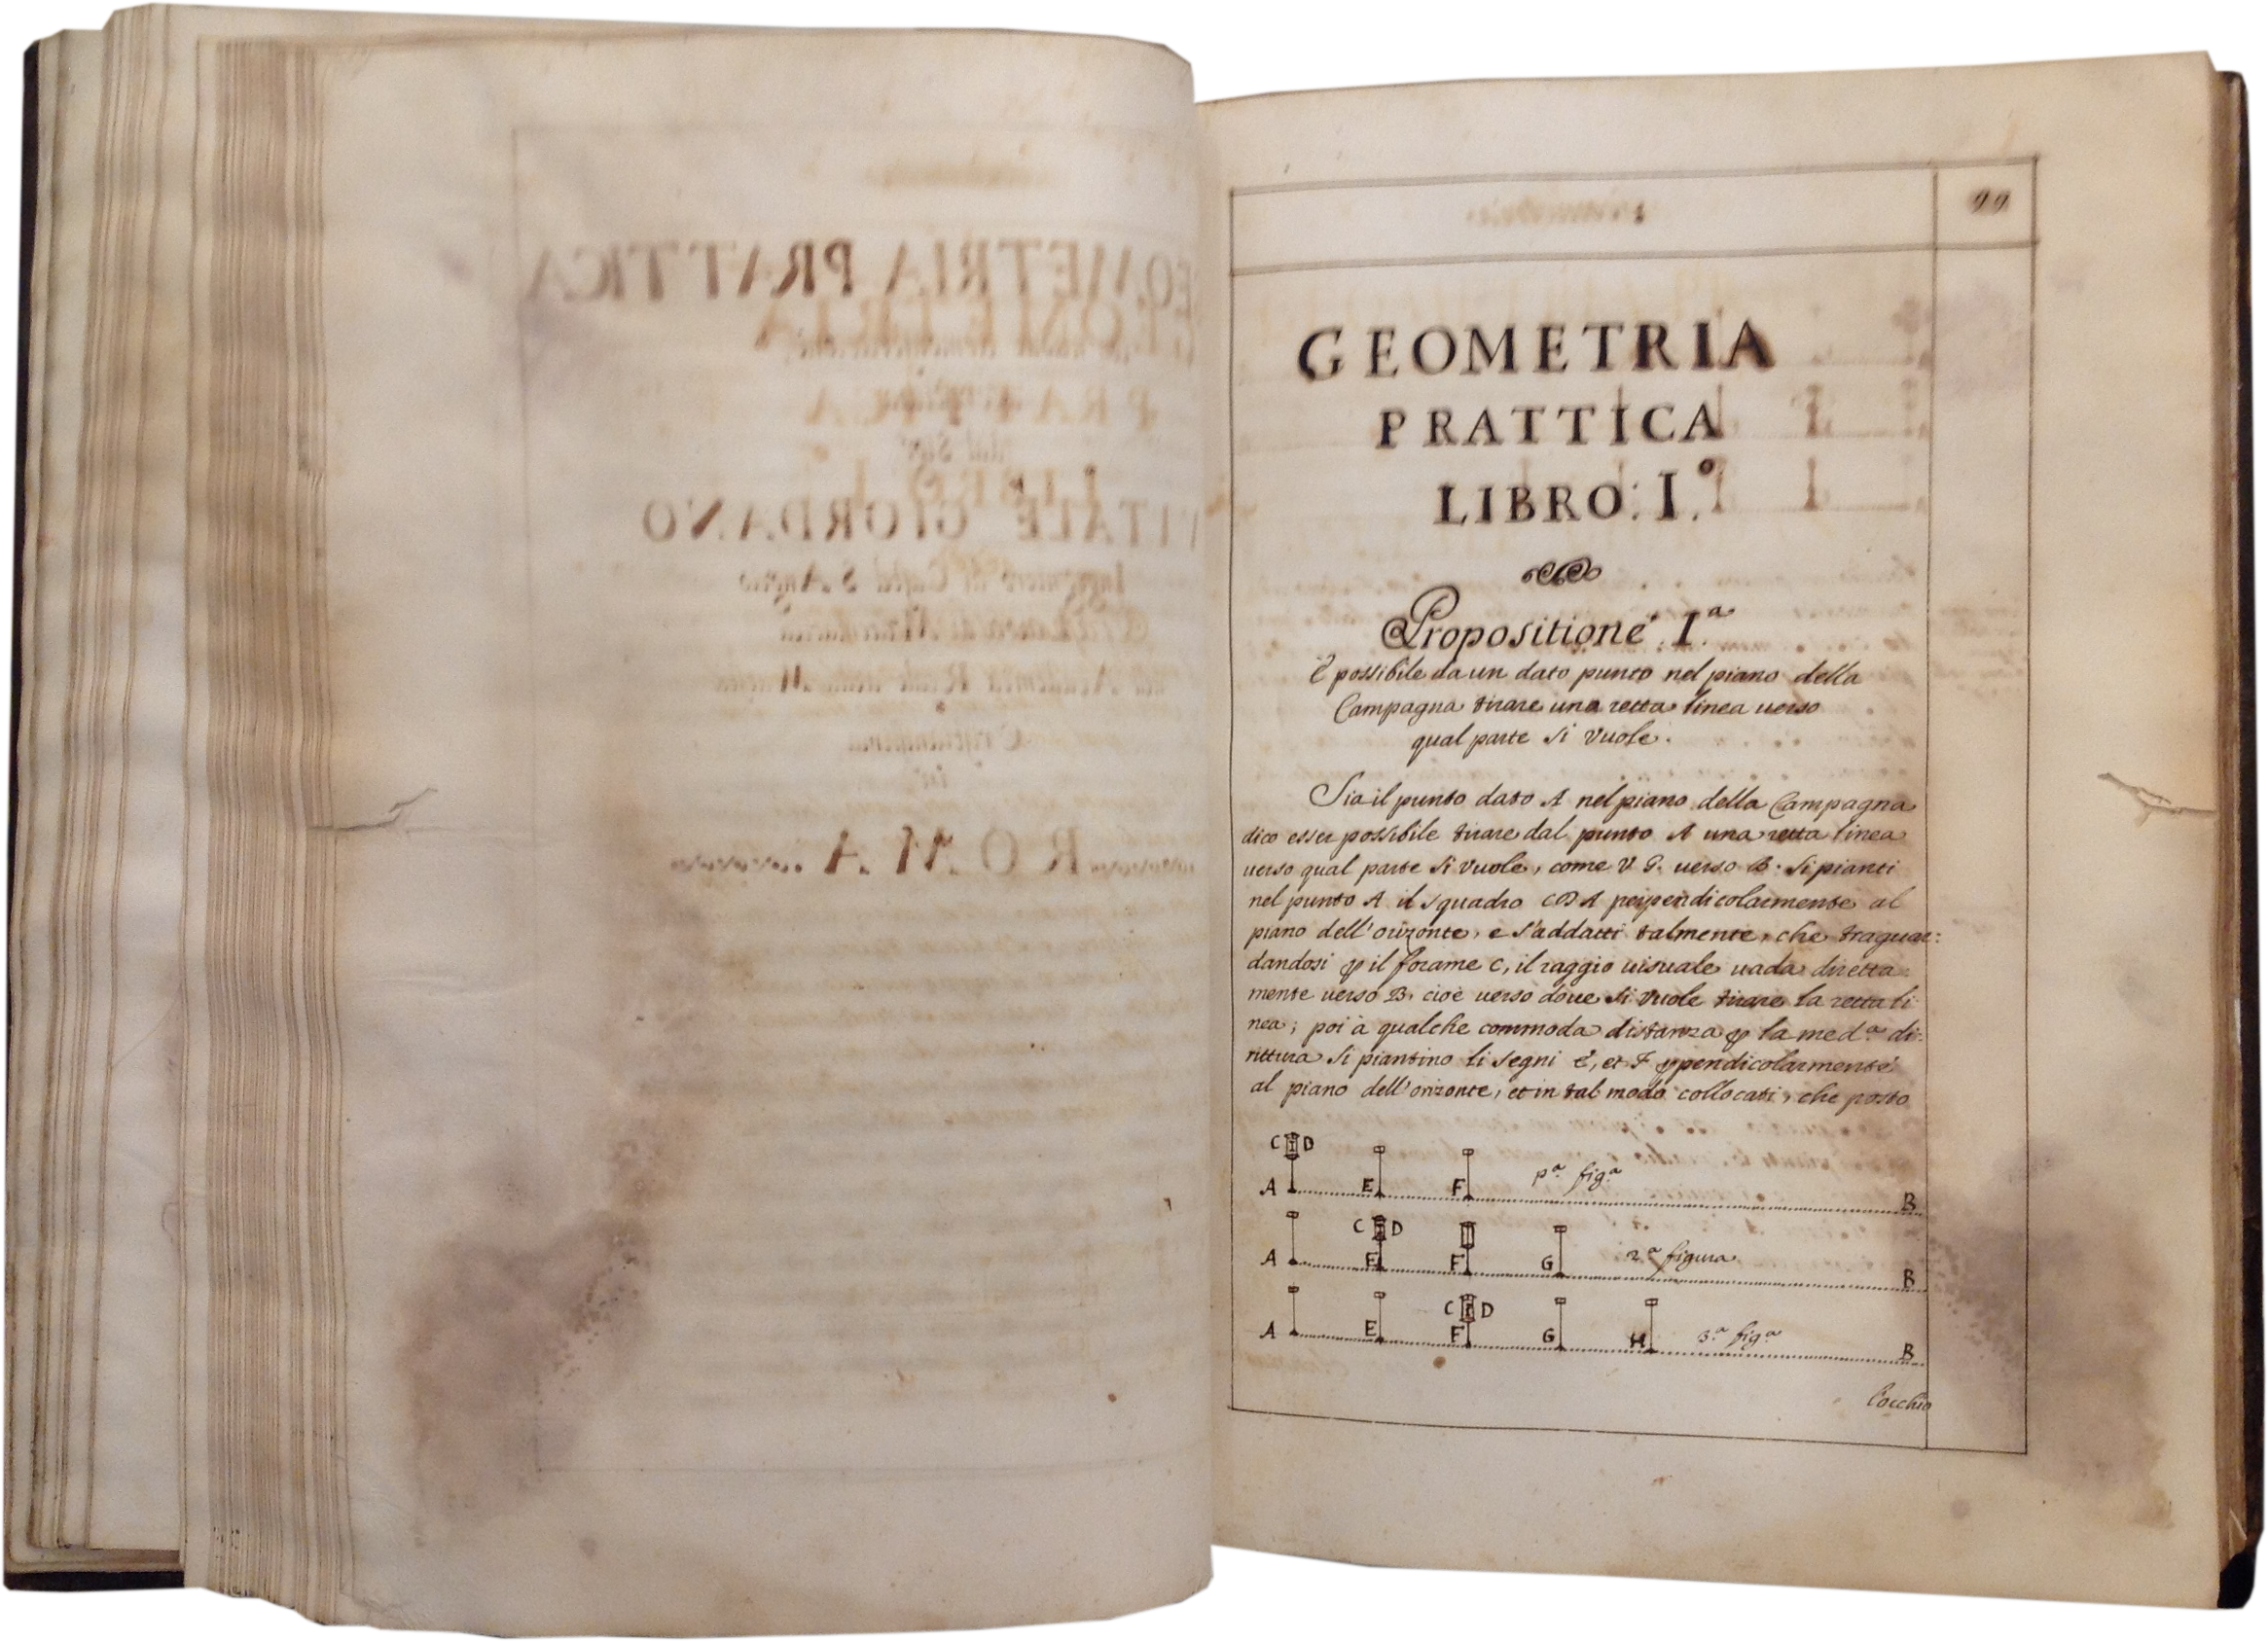 GEOMETRIA PRATTICA
VITALE GIORDANO
ROMA
99
GEOMETRIA
PRATTICA
LIBRO: I.º
Propositione I.ª
È possibile da un dato punto nel piano della
Campagna tirare una retta linea uerso
qual parte si vuole.
Sia il punto dato A nel piano della Campagna
dico esser possibile tirare dal punto A una retta linea
uerso qual parte si vuole, come V. G. uerso B. Si pianti
nel punto A il squadro CDA perpendicolarmente al
piano dell'orizonte, e s'addatti talmente, che traguar:
dandosi ꝑ il forame C, il raggio uisuale uada diretta
mente uerso B, cioè uerso doue si vuole tirare la retta li
nea; poi à qualche commoda distanza ꝑ la med.ª di:
rittura si piantino li segni E, et F ꝑpendicolarmente
al piano dell'orizonte, et in tal modo collocati, che posto
C D
A E F p.ª fig.ª B
C D
A E F G 2.ª figura B
C D
A E F G H 3.ª fig.ª B
l'occhio